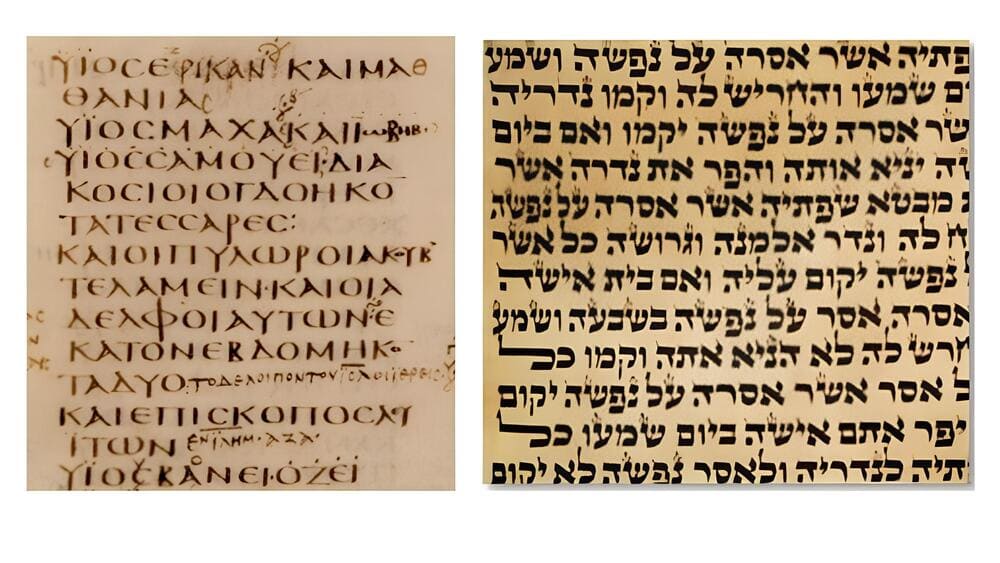 ΫΙΟCΕΡΙΚΑΝ ΚΑΙΜΑΘ
ΘΑΝΙΑC
ΫΙΟCΜΑΧΑΚΑΙΙωΒΗΒ·
ΫΙΟCCΑΜΟΥΕΙ·ΔΙΑ
ΚΟCΙΟΙΟΓΔΟΗΚΟ
ΤΑΤΕCCΑΡΕC:
ΚΑΙΟΙΠΥΛΩΡΟΙΑΚΟΥΒ
ΤΕΛΑΜΕΙΝ·ΚΑΙΟΙΑ
ΔΕΛΦΟΙΑΥΤΩΝΕ
ΚΑΤΟΝΕΒΔΟΜΗΚΟ
ΤΑΔΥΟ
ΚΑΙΕΠΙCΚΟΠΟCΛΥ
ΪΤΩΝ
ΫΙΟCΒΑΝΕΙ·ΟΖΕΙ
שפתיה אשר אסרה על נפשה ושמע
שמעו והחריש לה וקמו נדריה
אשר אסרה על נפשה יקמו ואם ביום
יניא אותה והפר את נדרה אשר
מבטא שפתיה אשר אסרה על נפשה
לה ונדר אלמנה וגרושה כל אשר
נפשה יקום עליה ואם בית אישה
אסרה אסר על נפשה בשבעה ושמע
חרש לה לא הניא אתה וקמו כל
אסר אשר אסרה על נפשה יקום
יפר אתם אישה ביום שמעו כל
תיה לנדריה ולאסר נפשה לא יקום